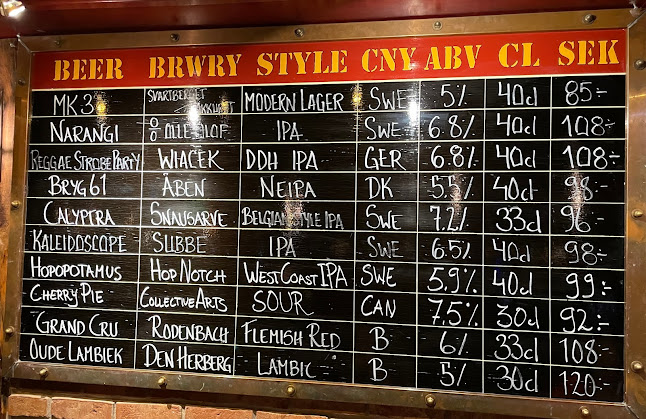 BEER BRWRY STYLE CNY ABV CL SEK
MK3 SVARTBERGET MODERN LAGER SWE 5% 40cl 85:-
NARANGI OLLE OLOF IPA SWE 6.8% 40cl 108:-
REGGAE STROBE PARTY WIACEK DDH IPA GER 6.8% 40cl 108:-
BRYG 61 ÅBEN NEIPA DK 5.5% 40cl 98:-
CALYPTRA SNAUSARVE BELGIAN STYLE IPA SWE 7.2% 33cl 96:-
KALEIDOSCOPE SUBBE IPA SWE 6.5% 40cl 98:-
HOPOPOTAMUS HOP NOTCH WEST COAST IPA SWE 5.9% 40cl 99:-
CHERRY PIE COLLECTIVE ARTS SOUR CAN 7.5% 30cl 92:-
GRAND CRU RODENBACH FLEMISH RED B 6% 33cl 108:-
OUDE LAMBIEK DEN HERBERG LAMBIC B 5% 30cl 120:-